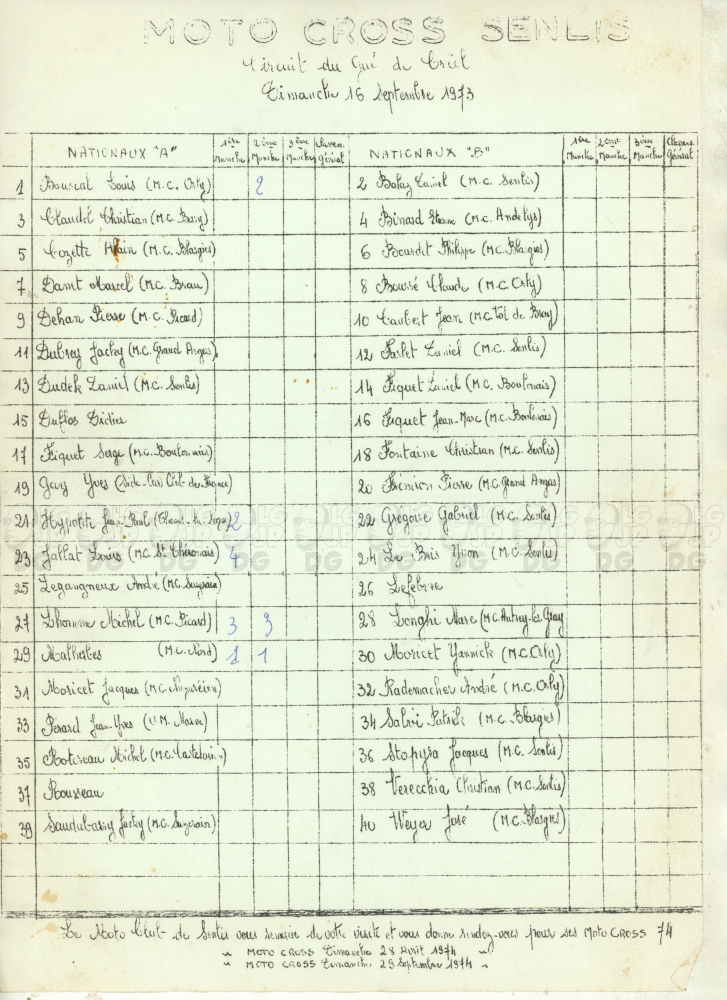 MOTO CROSS SENLIS
Circuit du Gué de Creil
Dimanche 16 Septembre 1973
NATIONAUX "A" 1ère Manche 2ème Manche 3ème Manche Classem. Général NATIONAUX "B" 1ère Manche 2ème Manche 3ème Manche Classem. Général
1 Bourcal Louis (M.C. Orly) 2 2 Balaz Daniel (M.C. Senlis)
3 Claudel Christian (M.C. Bercy) 4 Binard Etienne (M.C. Andelys)
5 Cozette Alain (M.C. Blargies) 6 Bourdet Philippe (M.C. Blargies)
7 Damt Marcel (M.C. Brau) 8 Boussé Claude (M.C. Orly)
9 Dehan Pierre (M.C. Picard) 10 Caubert Jean (M.C. Val de Bray)
11 Dubrey Jacky (M.C. Grand Angas) 12 Farlet Daniel (M.C. Senlis)
13 Dudek Daniel (M.C. Senlis) 14 Fiquet Daniel (M.C. Boulonnais)
15 Duflos Didier 16 Fiquet Jean-Marc (M.C. Boulonnais)
17 Fiquet Serge (M.C. Boulonnais) 18 Fontaine Christian (M.C. Senlis)
19 Yves (Side-Car Club de France) 20 Frémion Pierre (M.C. Grand Angas)
21 Hypolite Jean-Paul 2 22 Grégoire Gabriel (M.C. Senlis)
23 Jallat Louis (M.C. St. Chéronais) 4 24 Le Bris Yvon (M.C. Senlis)
25 Legangneux André (M.C. Suzerain) 26 Lefebvre
27 Lhomme Michel (M.C. Picard) 3 3 28 Longhi Marc (M.C. Autrey-les-Gray
29 Malherbes (M.C. Nord) 1 1 30 Moricet Yannick (M.C. Orly)
31 Moricet Jacques 32 Rademacher André (M.C. Orly)
33 Pérard Jean-Yves (U.M. Marne) 34 Salvi Patrick (M.C. Blargies)
35 Michel 36 Stopyra Jacques (M.C. Senlis)
37 Rousseau 38 Verecchia Christian (M.C. Senlis)
39 Saudubarry Jacky (M.C. Suzerain) 40 Weyer José (M.C. Blargies)
Le Moto Club de Senlis vous remercie de votre visite et vous donne rendez-vous pour ses MOTO CROSS 74
" MOTO CROSS Dimanche 28 Avril 1974 "
" MOTO CROSS Dimanche 29 Septembre 1974 "